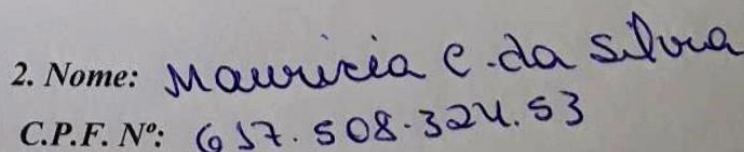 2. Nome: Mauricia C. da Silva
C.P.F. Nº: 657.508.324.53